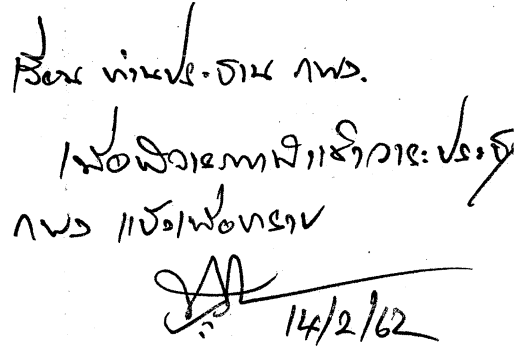 เรียน ท่านประธาน กพว.
เพื่อพิจารณานำเข้าวาระประชุ
กพว แจ้งเพื่อทราบ
14/2/62